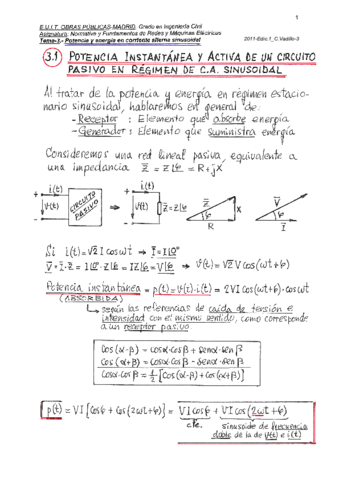 1
E.U.I.T. OBRAS PÚBLICAS-MADRID. Grado en Ingeniería Civil
Asignatura. Normativa y Fundamentos de Redes y Máquinas Eléctricas
Tema-3.- Potencia y energía en corriente alterna sinusoidal 2011-Edic.1_C.Vadillo-3
3.1 POTENCIA INSTANTÁNEA Y ACTIVA DE UN CIRCUITO
PASIVO EN RÉGIMEN DE C.A. SINUSOIDAL
Al tratar de la potencia y energía en régimen estacio-
nario sinusoidal, hablaremos en general de:
- Receptor : Elemento que absorbe energía
- Generador : Elemento que suministra energía
Consideremos una red lineal pasiva, equivalente a
una impedancia Z̅ = Z∠φ = R + jX
i(t) v(t) CIRCUITO PASIVO i(t) v(t) Z̅ = Z∠φ Z φ R X V̅ φ I̅
Si i(t) = √2 I cos ωt ⇒ I̅ = I∠0°
V̅ = I̅·Z̅ = I∠0°·Z∠φ = IZ∠φ = V∠φ ⇒ v(t) = √2 V cos(ωt + φ)
Potencia instantánea = p(t) = v(t)·i(t) = 2VI cos(ωt+φ)·cos ωt
(ABSORBIDA)
según las referencias de caída de tensión e
intensidad con el mismo sentido, como corresponde
a un receptor pasivo.
Cos(α-β) = cosα·cosβ + senα·senβ
Cos(α+β) = cosα·cosβ - senα·senβ
Cosα·cosβ = 1/2 [Cos(α-β) + cos(α+β)]
p(t) = VI [Cosφ + Cos(2ωt+φ)] = VI cosφ + VI cos(2ωt+φ)
cte. sinusoide de frecuencia
doble de la de v(t) e i(t)